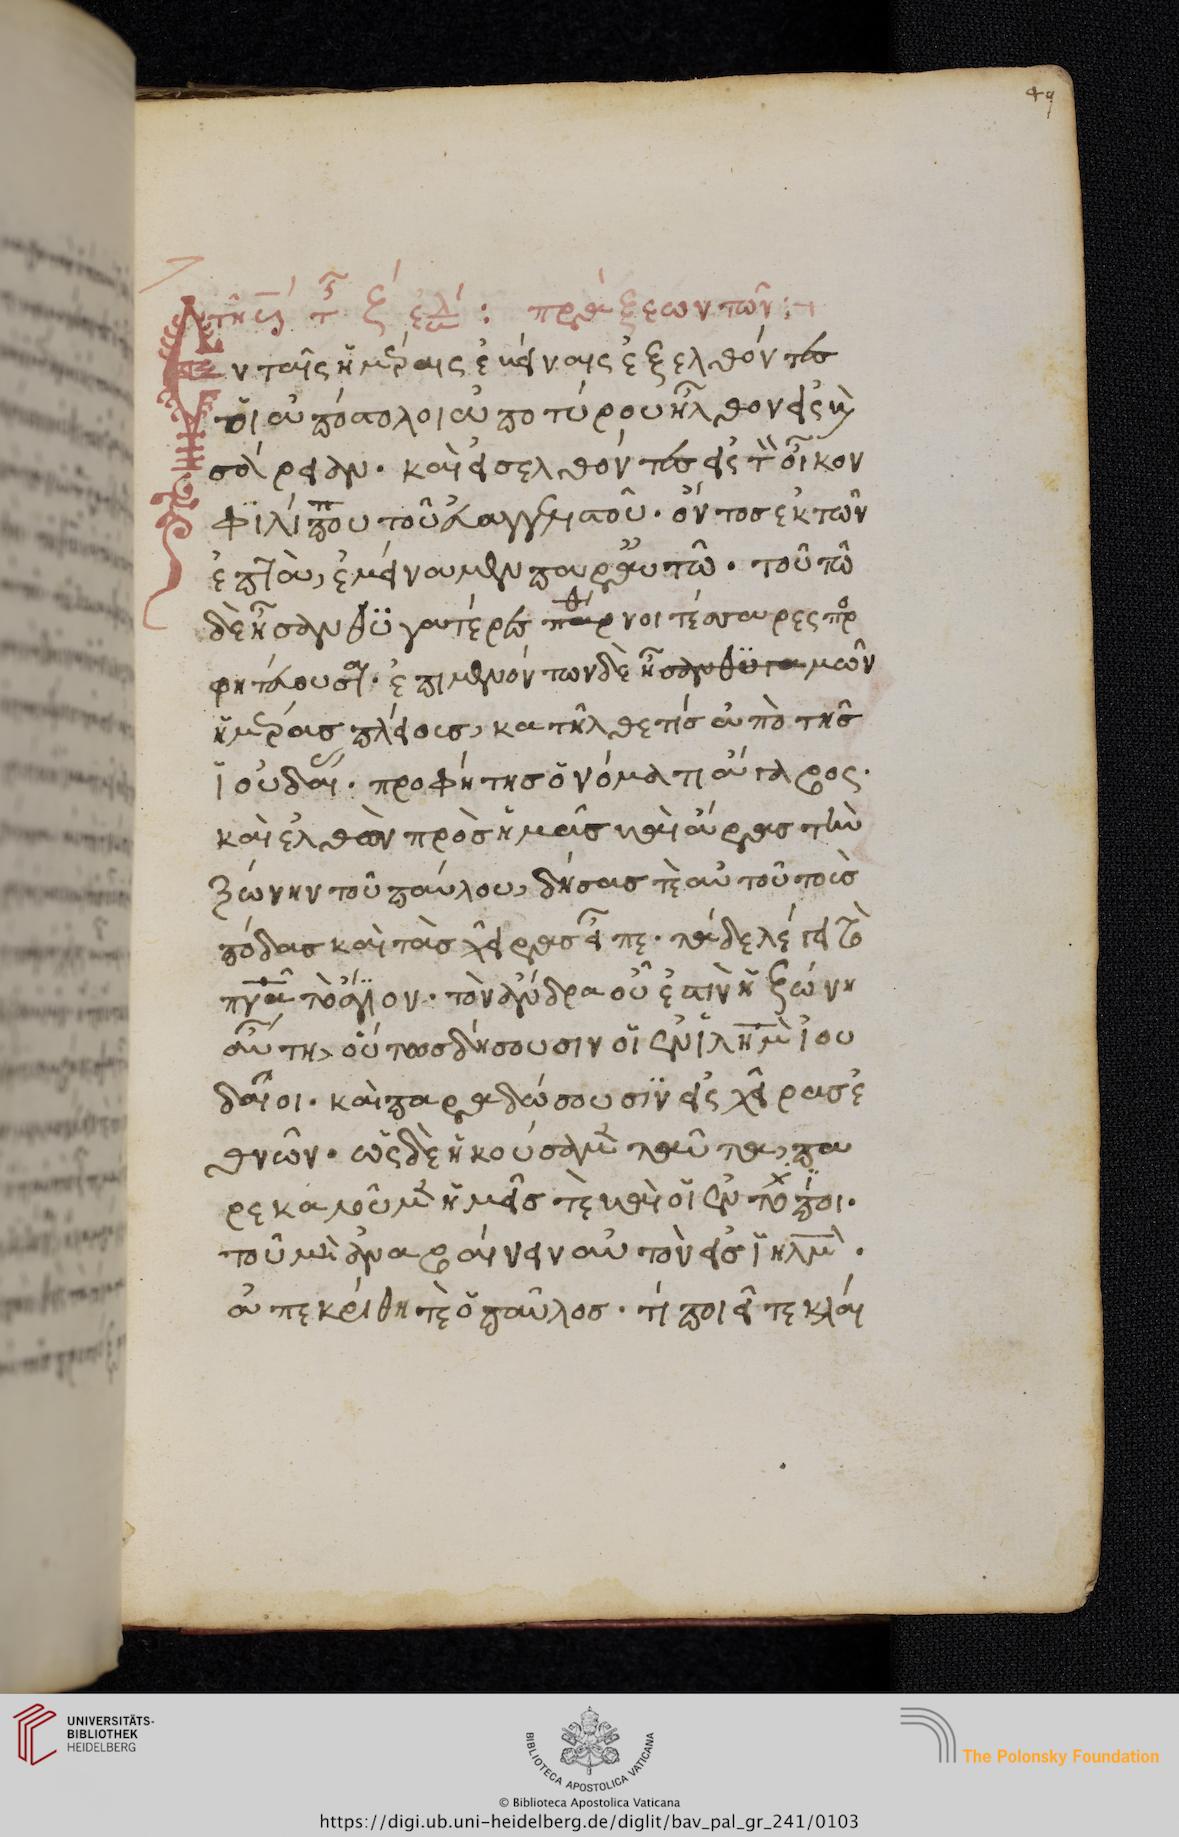 49
ἐν ταῖς ἡμέραις ἐκείναις ἐξελθόντες
οἱ ἀπόστολοι ἀπο τύρου ἦλθον εἰς και
σάρειαν. καὶ εἰσελθόντες εἰς τὸν οἶκον
Φιλίππου τοῦ εὐαγγελιστοῦ. ὄντοσ ἐκ τῶν
ἐπτὰ, ἐμείναμεν παρ αυτῶ. τούτω
δὲ ἦσαν θϋγατέρες παρθνοι τέσσαρες προ
φητεύουσαι. ἐπιμενόντων δὲ ἡμῶν
ἡμέρασ πλείοσ, κατῆλθε τίσ ἀπὸ τησ
ἰουδαίας. προφήτησ ὀνόματι ἄγαβος.
καὶ ἐλθὼν πρὸσ ἡμᾶσ καὶ ἄρασ τὴν
ζώνην τοῦ παύλου, δήσασ τὲ αὐτοῦ τοὺσ
πόδασ καὶ τὰσ χεῖρασ εἶπε. τάδε λέγει τὸ
πνα τὸ ἅγϊον. τὸν ἄνδρα οὗ ἐστὶν ἡ ζώνη
αὕτη, οὕτωσ δήσουσιν οἱ ἐν ἱλημ ἰου
δαῖοι. καὶ παραδώσουσϊν εἰς χεῖρασ ἐ
θνῶν. ὡς δὲ ἠκούσαμεν ταῦτα, πα
ρεκαλοῦμεν ἡμεῖσ τὲ καὶ οἱ ἐντόποι.
τοῦ μὴ ἀναβαίνειν αὐτὸν εἰσ ἱηλμ.
ἀπεκρίθη τὲ ὁ παῦλοσ. τί ποιεῖτε κλαί
UNIVERSITÄTS-
BIBLIOTHEK
HEIDELBERG
BIBLIOTECA APOSTOLICA VATICANA
© Biblioteca Apostolica Vaticana
The Polonsky Foundation
https://digi.ub.uni-heidelberg.de/diglit/bav_pal_gr_241/0103